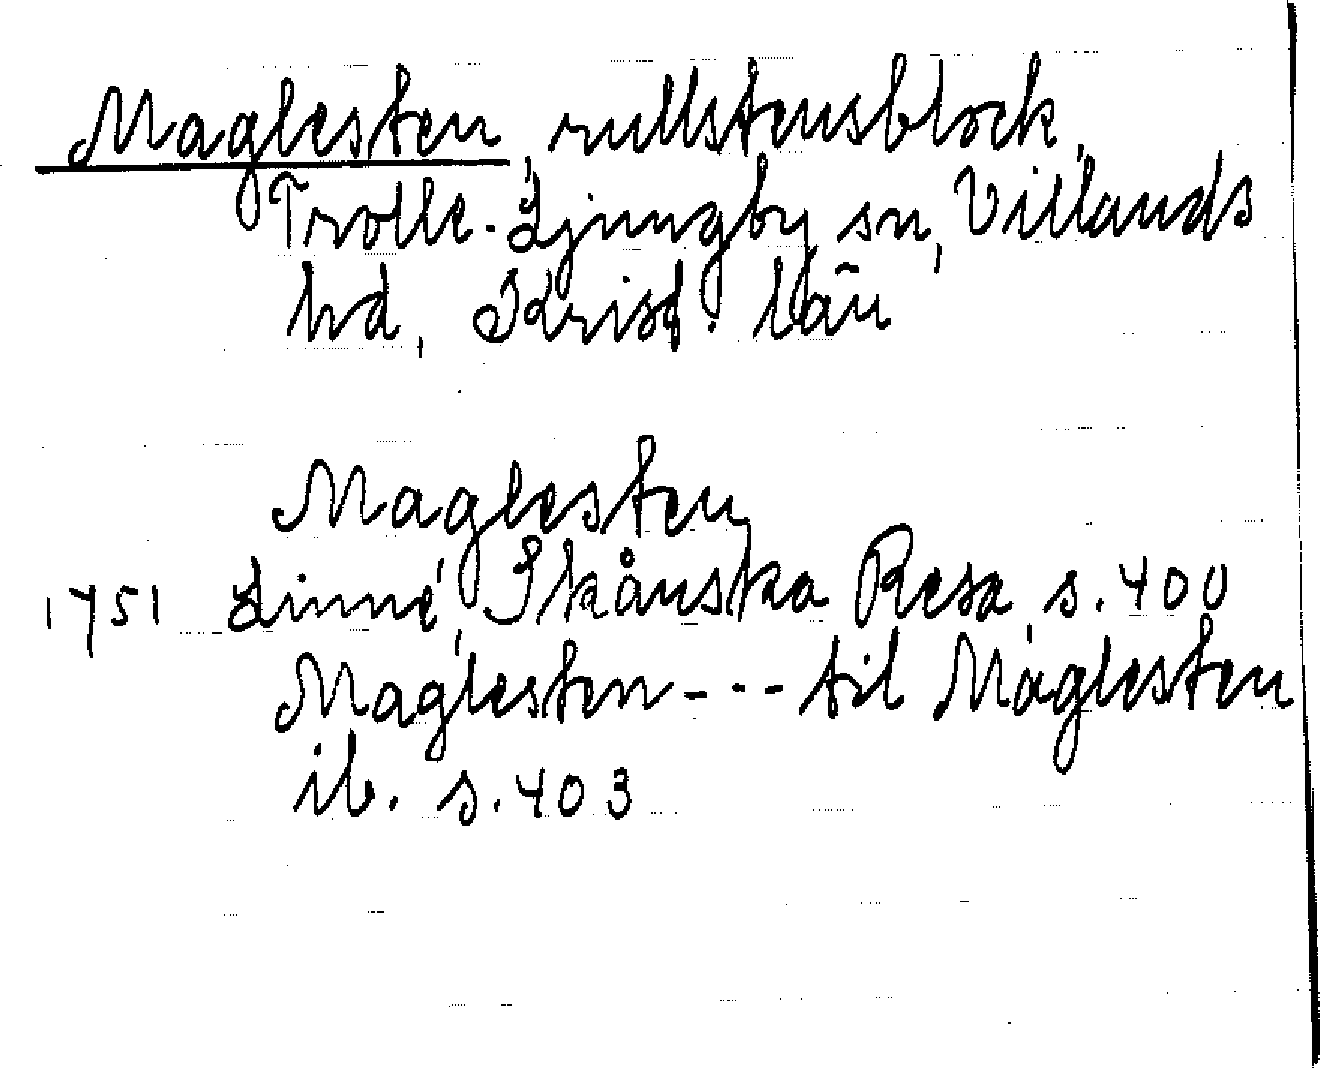 Maglesten, rullstensblock,
Trolle-Ljungby sn, Villands
hd, Krist. län
Maglesten
1751 Linné, Skånska Resa, s. 400
Maglesten --- til Maglesten
ib. s. 403